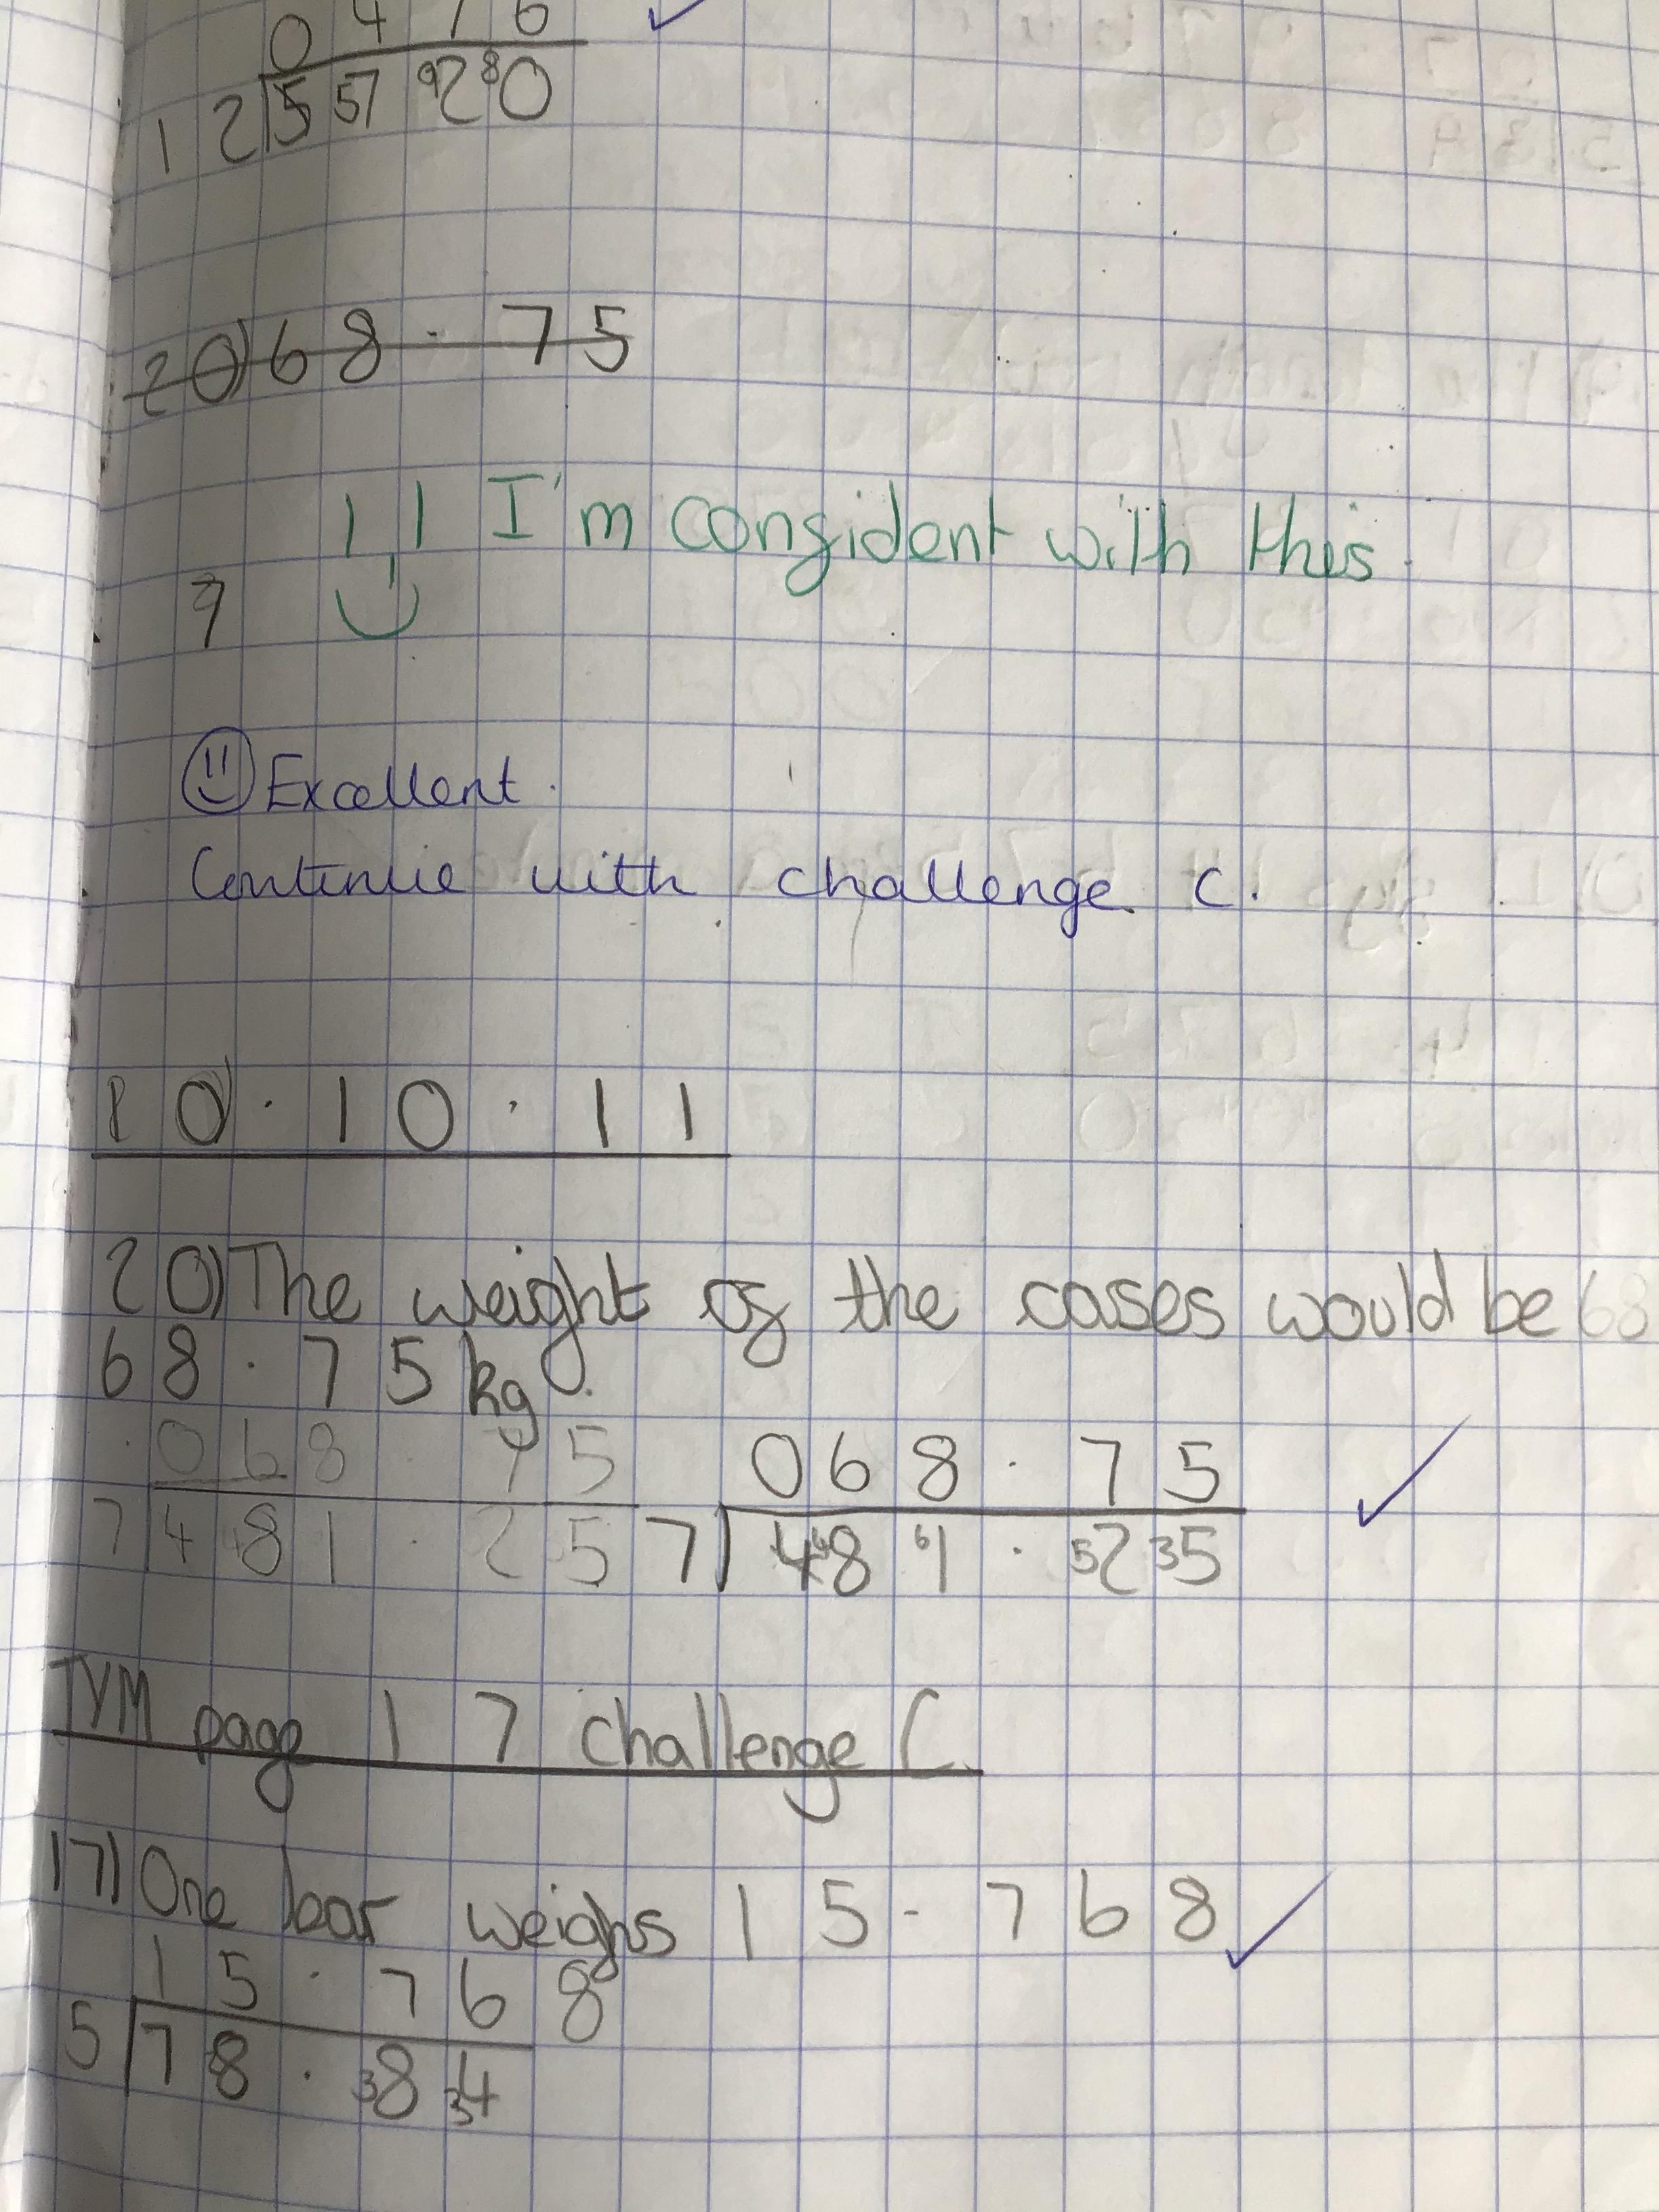 0 4 7 6
1 2 5 57 92 80
20) 68 . 75
I'm congident with this
7
Excellent.
Continue with challenge C.
10 . 10 . 11
20) The weight og the cases would be 68
68 . 75 kg.
068 . 75 068 . 75
7 4 48 1 . 2 5 7) 4 48 61 . 52 35
TYM page 17 challenge C.
17) One bar weighs 15 . 768
15 . 768
5 78 . 38 34